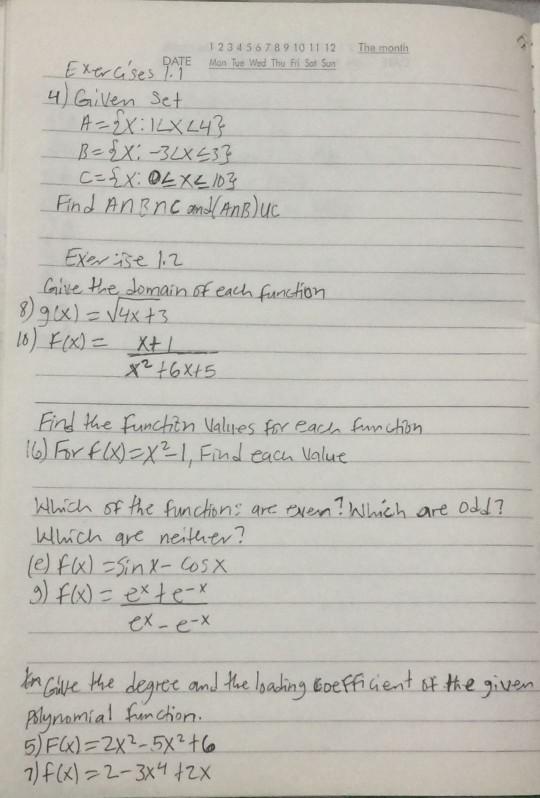 1 2 3 4 5 6 7 8 9 10 11 12 The month
DATE Mon Tue Wed Thu Fri Sat Sun
Exercises 1.1
4) Given Set
A={X: 1<X<4}
B={X: -3<X≤3}
C={X: 0≤X≤10}
Find A∩B∩C and (A∩B)UC
Exercise 1.2
Give the domain of each function
8) g(x) = √4x+3
10) F(x) = x+1
x²+6x+5
Find the function values for each function
16) For f(x)=x²-1, Find each value
Which of the functions are even? Which are odd?
Which are neither?
(e) f(x) = Sin x - Cos x
g) f(x) = e^x + e^-x
e^x - e^-x
Give the degree and the loading Coefficient of the given
Polynomial function.
5) F(x) = 2x²-5x²+6
7) f(x) = 2-3x⁴+2x